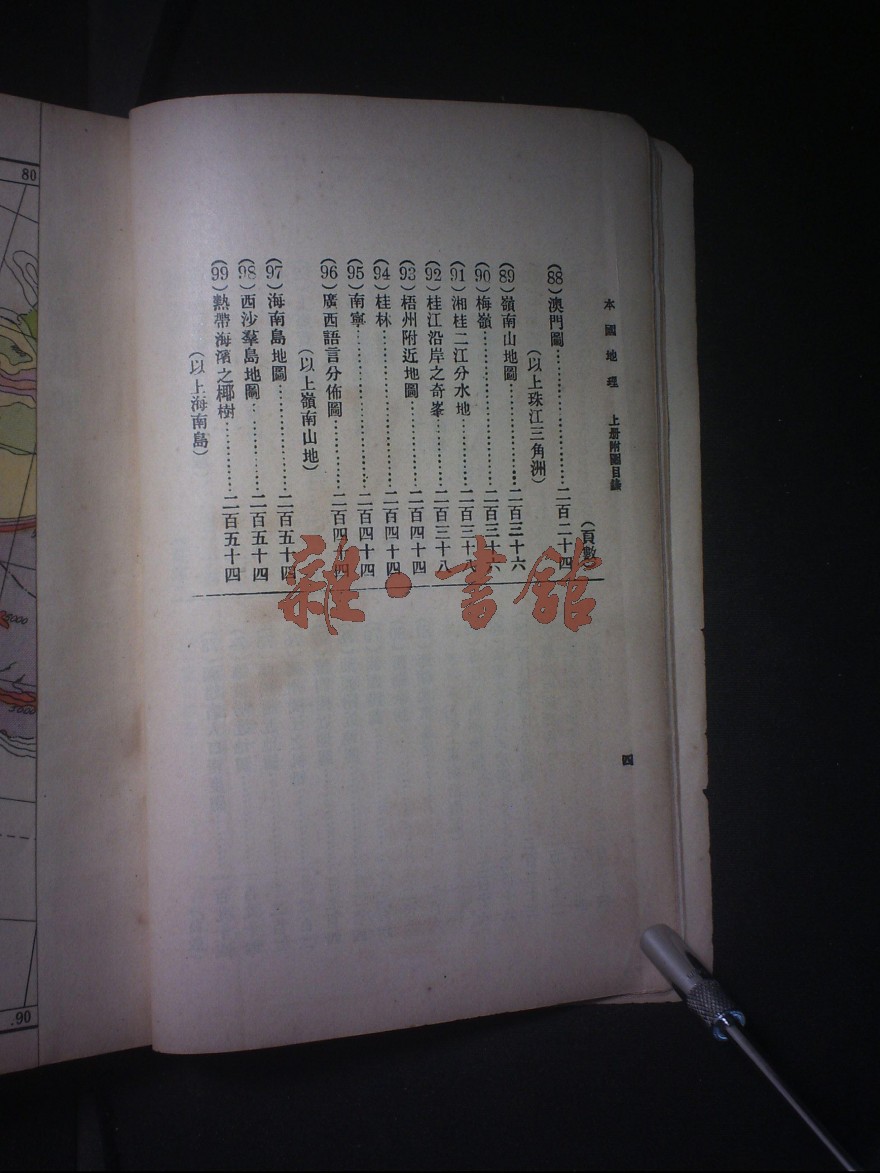 本國地理 上册附圖目錄
四
(頁數)
(88)澳門圖……………………二百二十四
(以上珠江三角洲)
(89)嶺南山地圖……………………二百三十六
(90)梅嶺……………………二百三十六
(91)湘桂二江分水地……………………二百三十八
(92)桂江沿岸之奇峯……………………二百三十八
(93)梧州附近地圖……………………二百四十四
(94)桂林……………………二百四十四
(95)南寧……………………二百四十四
(96)廣西語言分佈圖……………………二百四十四
(以上嶺南山地)
(97)海南島地圖……………………二百五十四
(98)西沙羣島地圖……………………二百五十四
(99)熱帶海濱之椰樹……………………二百五十四
(以上海南島)
雜·書館
80
3000
.90